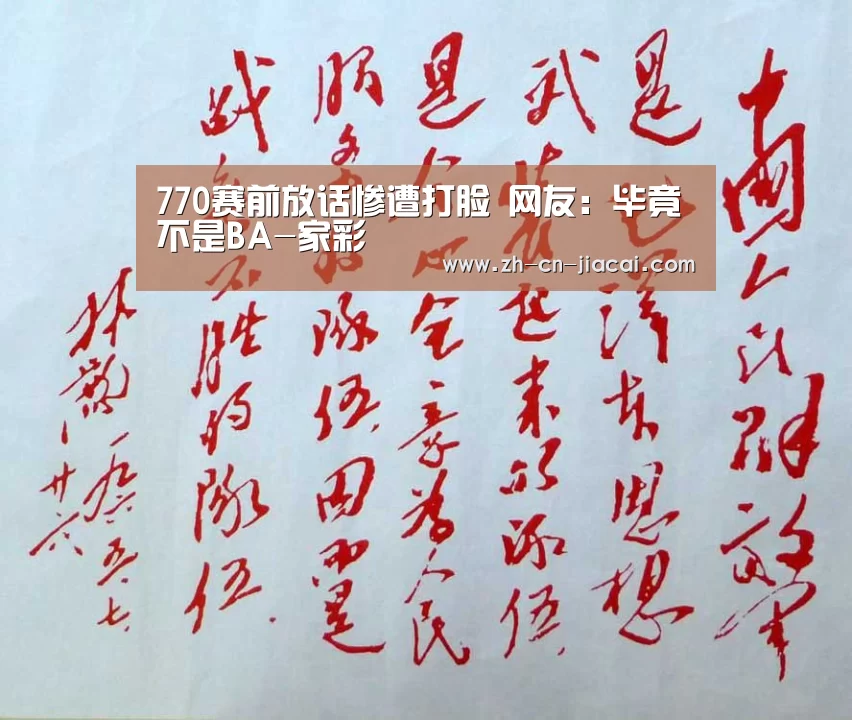 770赛前放话惨遭打脸 网友：毕竟
不是BA-家彩
www.zh-cn-jiacai.com
中国人民解放军
是毛澤东思想
武装起来的隊伍，
是全心全意為人民
服务的隊伍，因而是
战无不胜的隊伍.
林彪
一九六五.七.
廿六